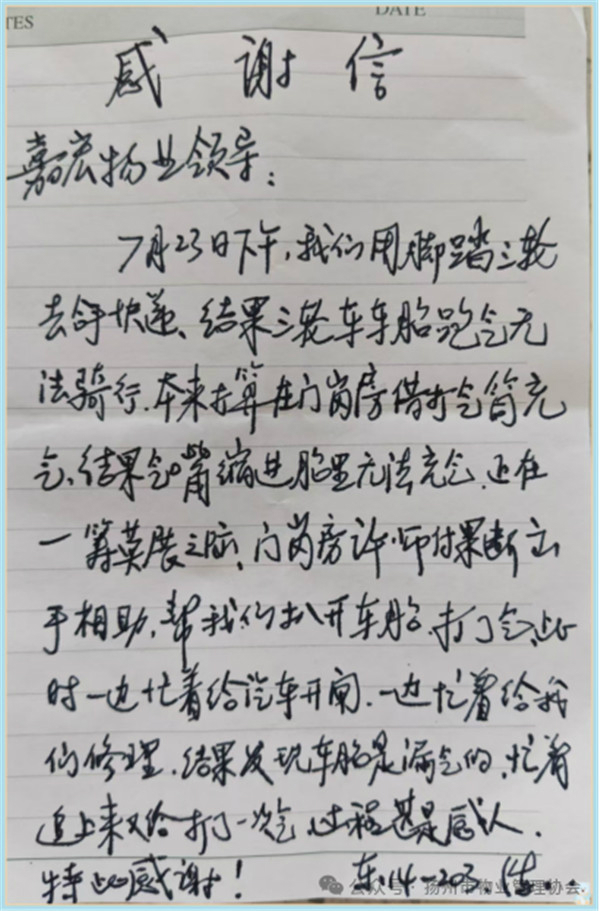 TES
DATE
感谢信
嘉宏物业领导:
7月23日下午,我们用脚踏三轮
去拿快递、结果三轮车车胎跑气无
法骑行.本来打算在门岗房借打气筒充
气、结果气嘴缩进胎里无法充气.正在
一筹莫展之际、门岗房许师付果断出
手相助.帮我们扒开车胎.打了气、此
时一边忙着给汽车开闸.一边忙着给我
们修理.结果发现车胎是漏气的.忙着
追上来又给打了一次气,过程甚是感人.
特此感谢!
东14-203
公众号·扬州市物业管理协会